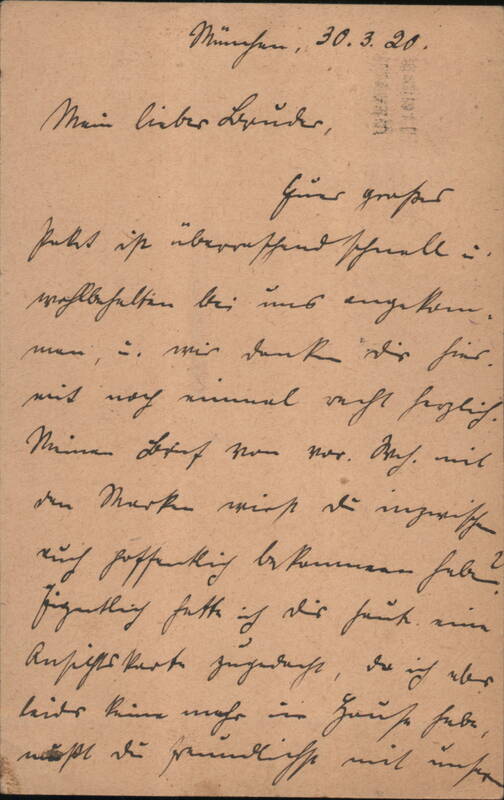 München, 30.3.20.
Mein lieber Bruder,
Euer großes
Paket ist überraschend schnell u.
wohlbehalten bei uns angekom-
men, u. wir danken dir hier-
mit noch einmal recht herzlich.
Meinen Brief von vor. Wch. mit
den Marken wirst du inzwischen
auch hoffentlich bekommen haben?
Eigentlich hatte ich dir heute eine
Ansichtskarte zugedacht, da ich aber
leider keine mehr im Hause habe,
mußt du freundlichst mit unserer